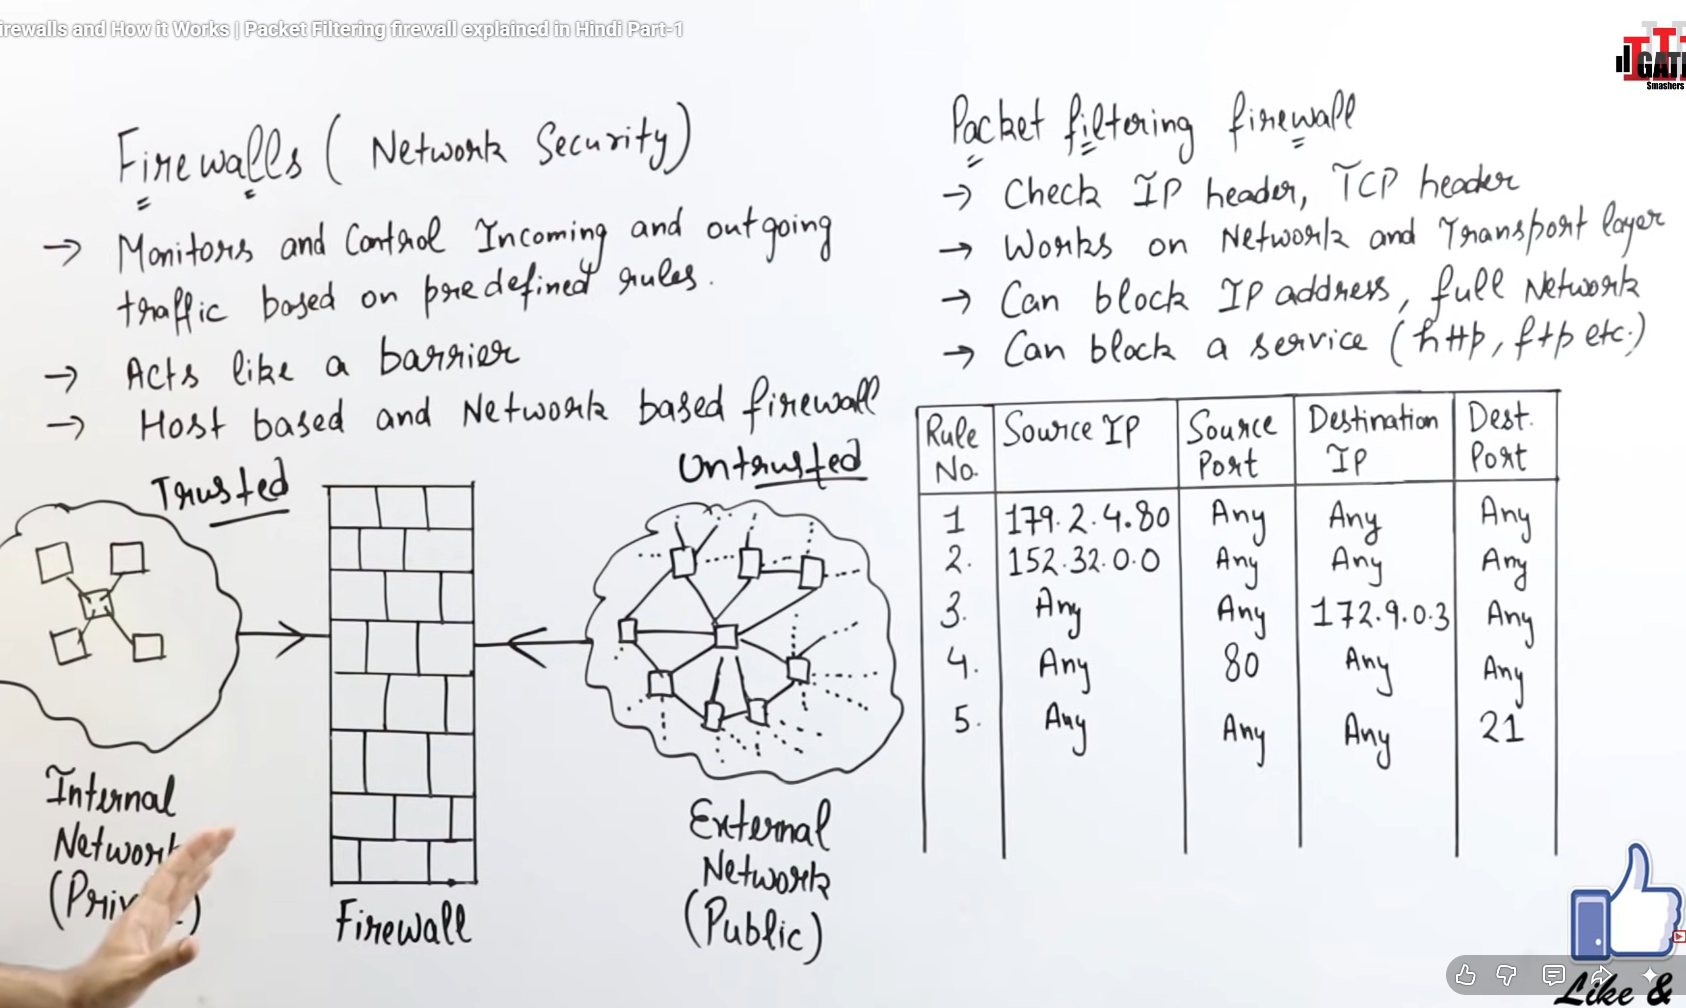 irewalls and How it Works | Packet Filtering firewall explained in Hindi Part-1
GATE
Smashers
Firewalls ( Network Security)
→ Monitors and Control Incoming and outgoing
traffic based on predefined rules.
→ Acts like a barrier
→ Host based and Network based firewall
Trusted
Untrusted
Internal
Network
(Priv
Firewall
External
Network
(Public)
Packet filtering firewall
→ Check IP header, TCP header
→ Works on Network and Transport layer
→ Can block IP address, full Network
→ Can block a service (http, ftp etc.)
Rule No. Source IP Source Port Destination IP Dest. Port
1 179.2.4.80 Any Any Any
2. 152.32.0.0 Any Any Any
3. Any Any 172.9.0.3 Any
4. Any 80 Any Any
5. Any Any Any 21
Like &